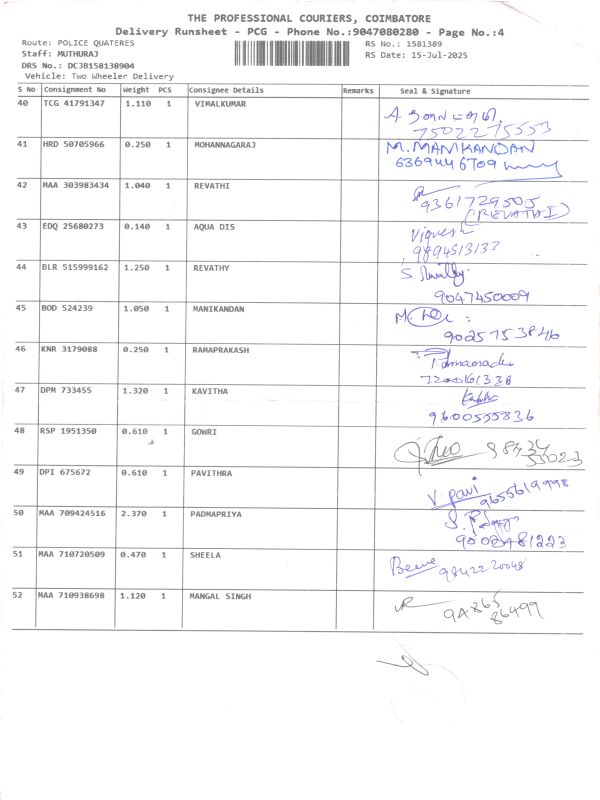 THE PROFESSIONAL COURIERS, COIMBATORE
Delivery Runsheet - PCG - Phone No.:9047080280 - Page No.:4
Route: POLICE QUATERES RS No.: 1581389
Staff: MUTHURAJ RS Date: 15-Jul-2025
DRS No.: DCJB158138904
Vehicle: Two Wheeler Delivery
S No Consignment No Weight PCS Consignee Details Remarks Seal & Signature
40 TCG 41791347 1.110 1 VIMALKUMAR
7502275553
41 HRD 50705966 0.250 1 MOHANNAGARAJ M. MANIKANDAN
6369446709
42 MAA 303983434 1.040 1 REVATHI
9361729505
(REVATHI)
43 EDQ 25680273 0.140 1 AQUA DIS Vignesh
9894513133
44 BLR 515999162 1.250 1 REVATHY
9047450009
45 BOD 524239 1.050 1 MANIKANDAN
9025753846
46 KNR 3179088 0.250 1 RAMAPRAKASH
47 DPM 733455 1.320 1 KAVITHA
9600555836
48 RSP 1951350 0.610 1 GOWRI
49 DPI 675672 0.610 1 PAVITHRA V. pavi
9655619998
50 MAA 709424516 2.370 1 PADMAPRIYA
9002481223
51 MAA 710720509 0.470 1 SHEELA
9842220048
52 MAA 710938698 1.120 1 MANGAL SINGH
94865
86499